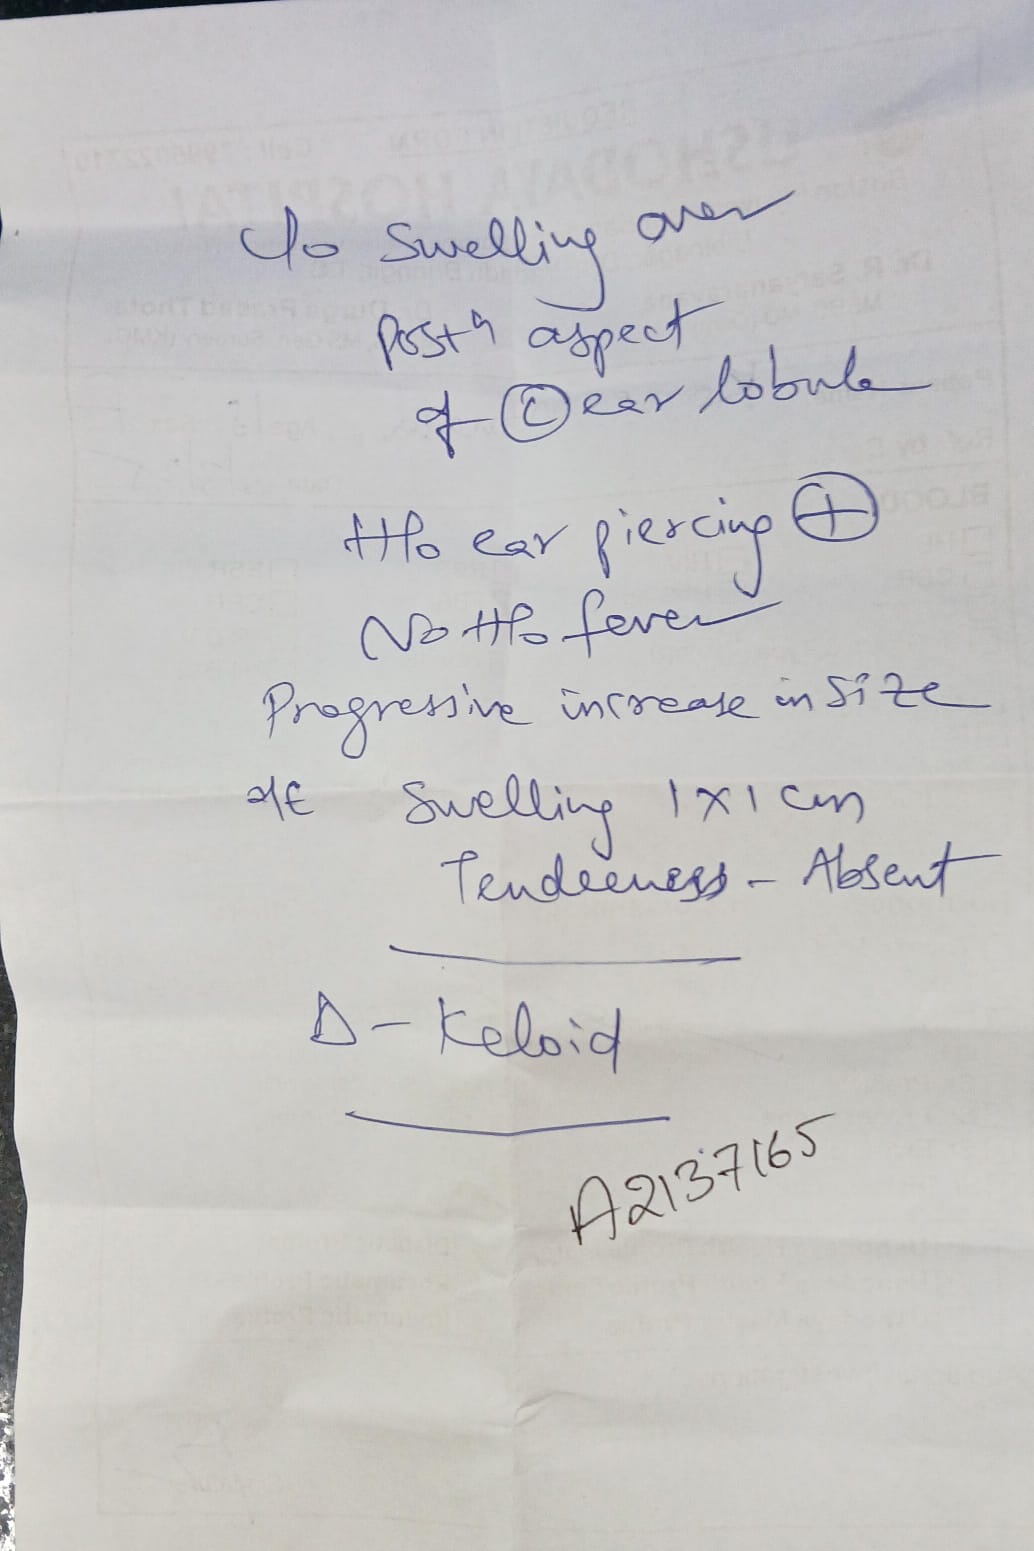 c/o swelling over
postr aspect
of Ⓛ ear lobule
H/o ear piercing ⊕
No H/o fever
Progressive increase in size
o/E swelling 1x1 cm
Tenderness - Absent
Δ - Keloid
A2137165